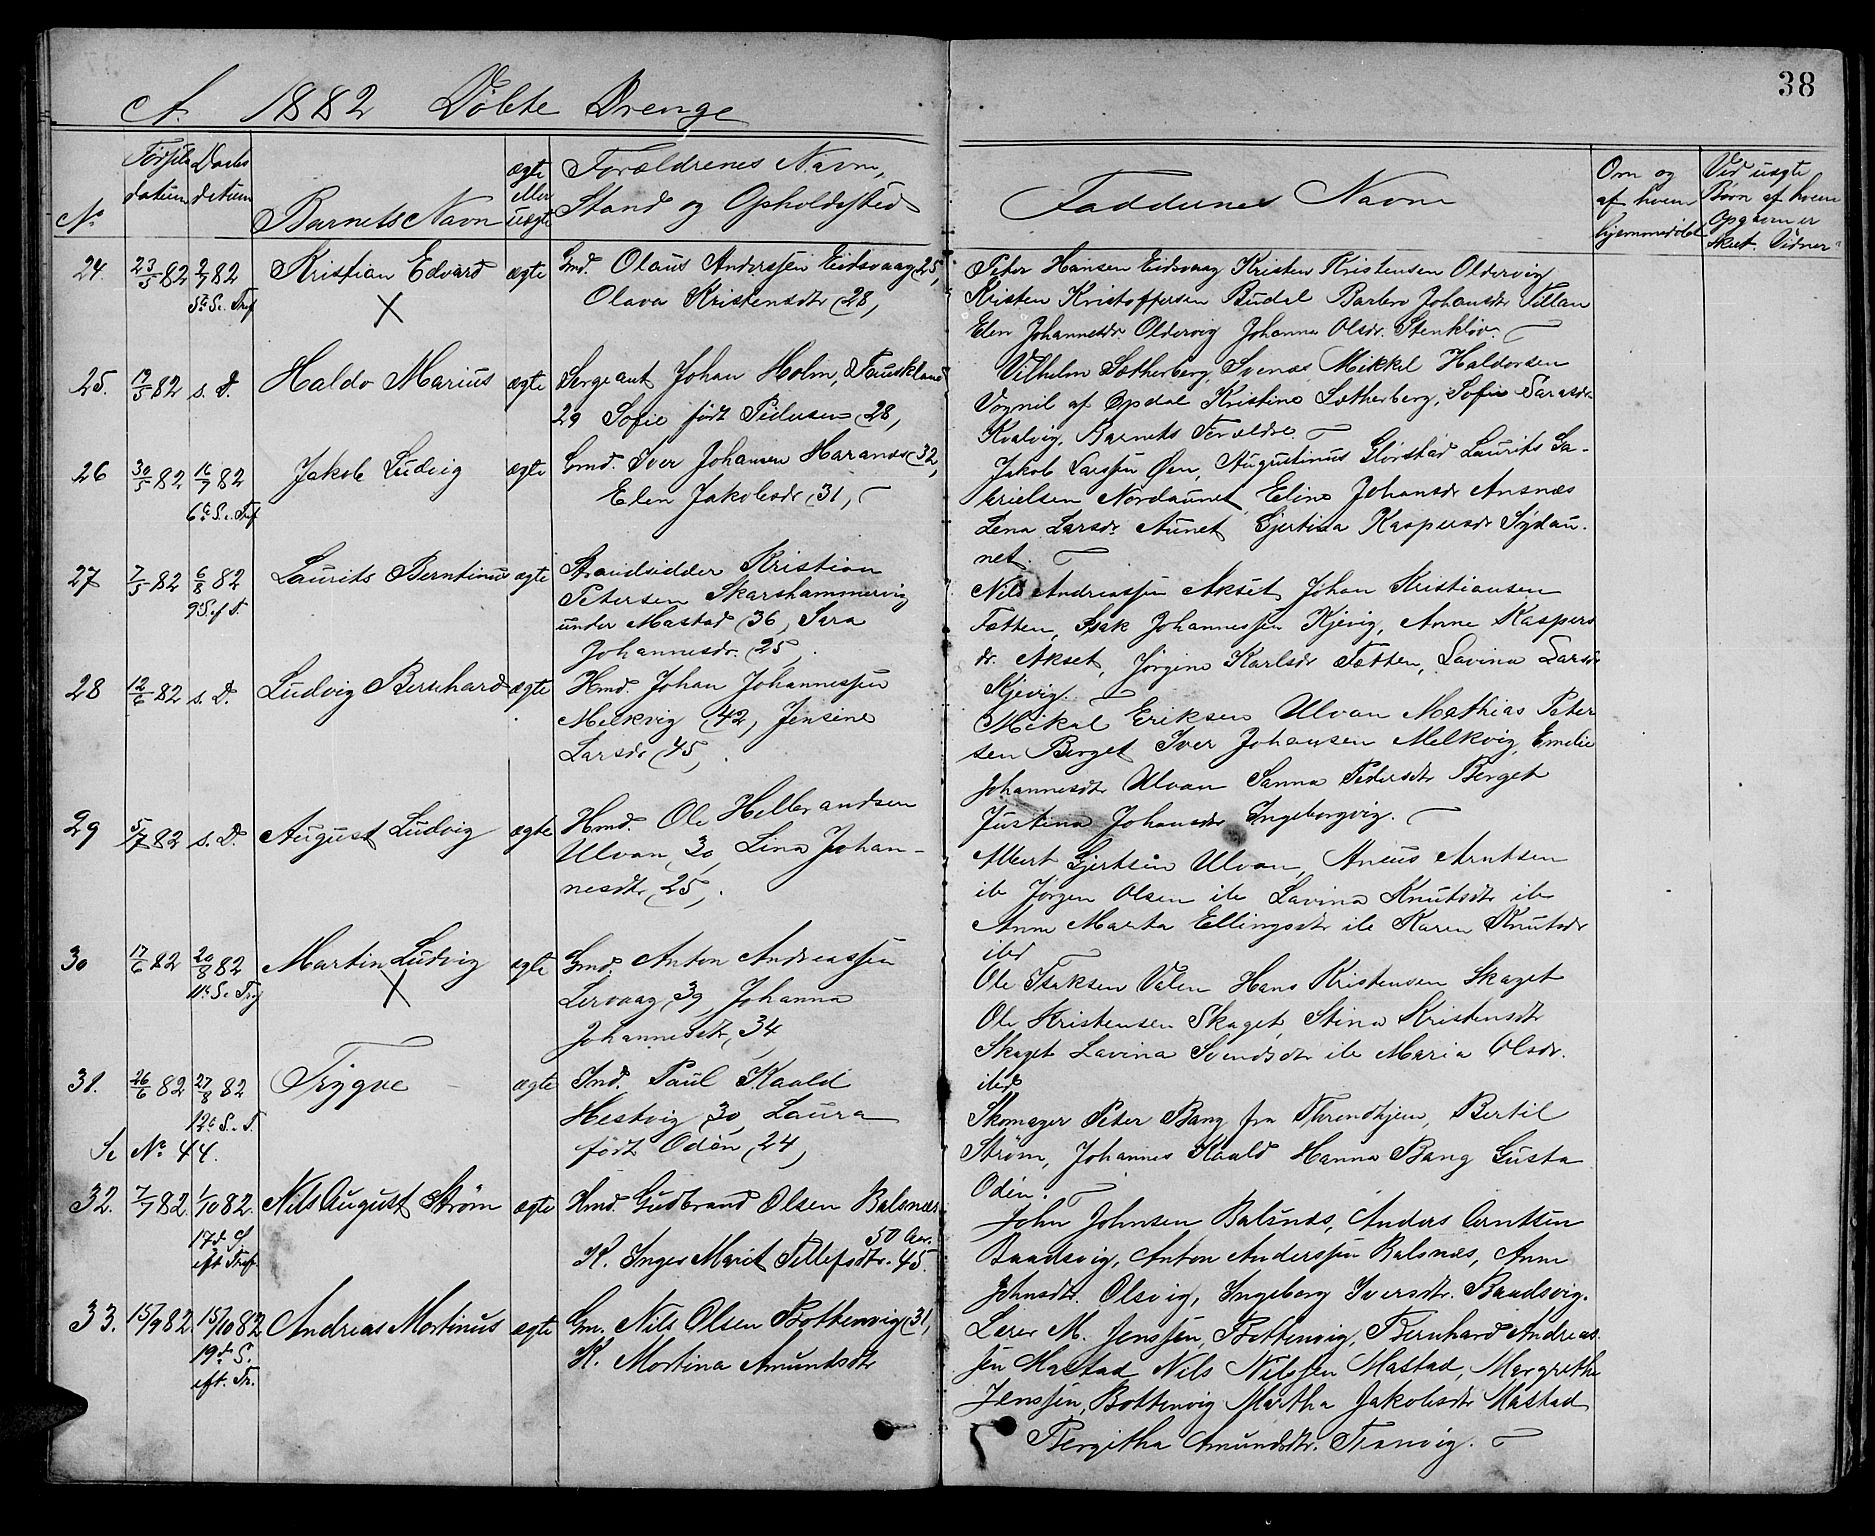 38
A. 1882 Döbte Drenge
No
Födsels datum
Daabs datum
Barnets Navn
ægte eller uægte
Forældrenes Navn, Stand og Opholdssted
Faddernes Navne
Om og af hvem hjemmedöbt
Ved uægte Børn af hvem Opgaven er skeet. Vidner
24. 23/5 82 2/7 82 Kristian Edvard ægte Gmd. Olaus Anderssen Eidsvaag (25,
5te S. e. Tref X Olava Kristensdtr (28,
Peter Hansen Eidsvaag Kristen Kristensen Oldervig
Kristen Kristoffersen Budal Barbro Johansdr Villan
Elen Johannesdr. Oldervig Johanna Olsdr. Stenklöv.
25. 19/5 82 s. D. Haldo Marius ægte Sergeant Johan Holm, Fauskland
29 Sofie födt Pedersen (28,
Vilhelm Sætherberg, Svenæs Mikkel Haldorsen
Vognil af Opdal Kristine Sætherberg, Sofie Larsdr
Kvalvig, Barnets Forældre.
26 30/5 82 16/7 82 Jakob Ludvig ægte Gmd. Iver Johansen Haranes (32,
6te S. e. Tref Elen Jakobsdr (31,
Jakob Larssen Öen, Augustinus Glörstad Laurits Ga-
brielsen Nordaunet Eline Johansdr Ansnæs
Lena Larsdr Aunet Gjertina Kaspersdr Sydau-
net.
27 7/5 82 6/8 82 Laurits Berntinus ægte Strandsidder Kristian
9 S. ef T. Petersen Skarshammervig
under Mastad (36, Sara
Johannesdr. (25,.
Nils Andreassen Akset Johan Kristiansen
Tætten, Isak Johannessen Kjevig, Anne Kaspers
dr. Akset, Jörgine Karlsdr Tætten, Lavina Larsdr
Kjevig.
28 12/6 82 s. D. Ludvig Bernhard ægte Hmd. Johan Johannessen
Melkvig (42, Jensine
Larsdr (45,.
Mikal Eriksen Ulvan Mathias Peter
sen Berget Iver Johansen Melkvig, Emilie
Johannesdtr Ulvan Sanna Pedersdtr Berget
Justina Johansdtr Ingeborgvig.
29 5/7 82 s. D. August Ludvig ægte Hmd. Ole Hellbrandsen
Ulvan, 30, Lina Johan-
nesdtr (25,.
Albert Gjertsen Ulvan, Aneus Arntsen
ib Jörgen Olsen ib Lavina Knutsdtr ib
Anne Marta Ellingsdtr ib Karen Knutsdr
ibd
30 17/6 82 20/8 82 Martin Ludvig ægte Gmd. Anton Andreassen
11te S. e. Tref X Lervaag, 39, Johanna
Johannesdtr, 34
Ole Isaksen Valen Hans Kristensen Skaget
Ole Kristensen Skaget, Stina Kristensdtr
Skaget Lavina Svendsdtr ib Maria Olsdr.
ibd
31. 26/6 82 27/8 82 Trygve ægte Ind. Paul Kaald
12te S. e. T. Hestvig, 30, Laura
Se No 44. födt Odén, (24,
Skomager Peter Bang fra Throndhjem, Bertil
Ström, Johannes Kaald Hanna Bang Gusta
Odén.
32. 7/7 82. 1/10 82. Nils August Ström ægte Hmd. Gudbrand Olsen Balsnæs
50 Aar.
17d. S. eft Tref. K. Inger Marit Tillefsdtr. 45.
John Johnsen Balsnæs, Anders Arntsen
Baadsvig, Anton Anderssen Balsnæs, Ane
Johnsdtr. Olsvig, Ingeborg Iversdtr. Baadsvig.
33. 15/9 82. 15/10 82 Andreas Mortinus ægte Gm. Nils Olsen Bottenvig (31,
19d. S. eft. Tr. K. Mortina Amundsdtr
Lærer M. Jenssen, Bottenvig, Bernhard Andreas-
sen Mastad Nils Nilssen Mastad, Margrethe
Jenssen, Bottenvig Martha Jakobsdtr Mastad
Bergitha Amundsdtr. Tranvig.